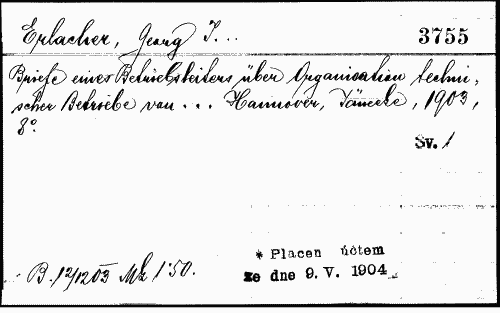 Erlacher, Georg J... 3755
Briefe eines Betriebsleiters über Organisation techni-
scher Betriebe von ... Hannover, Jänecke, 1903,
8°.
Sv. 1
* Placen účtem
ze dne 9. V. 1904
B. 12/12 03 Mk 1·50.